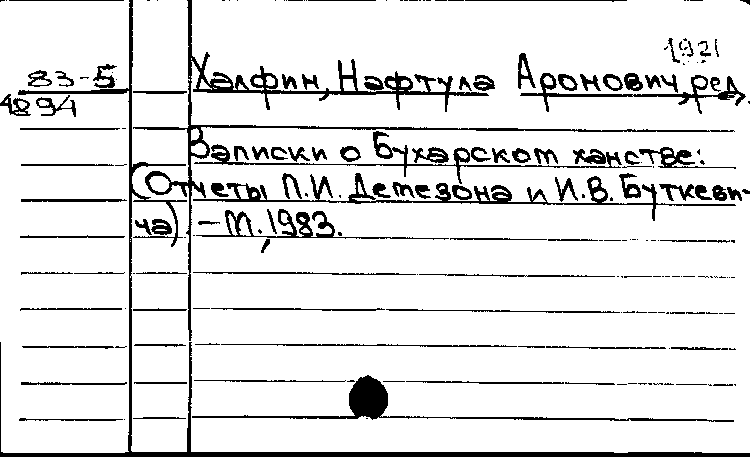 1921
83-5 Халфин, Нафтула Аронович, ред.
4894
Записки о Бухарском ханстве:
(Отчеты П.И. Демезона и И.В. Виткеви-
ча) – М., 1983.